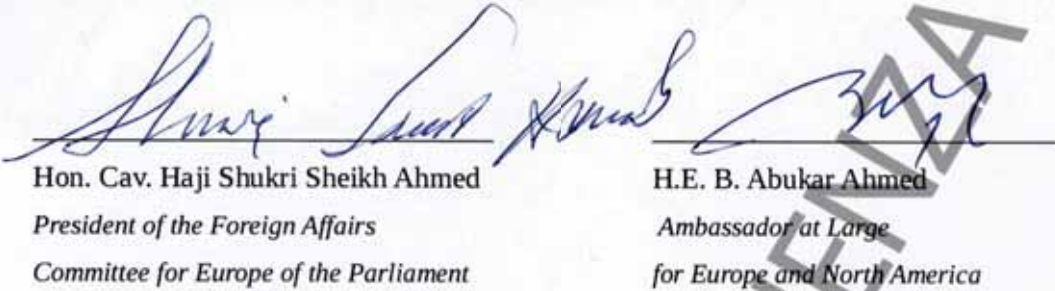 Hon. Cav. Haji Shukri Sheikh Ahmed
President of the Foreign Affairs
Committee for Europe of the Parliament
H.E. B. Abukar Ahmed
Ambassador at Large
for Europe and North America
ENZA